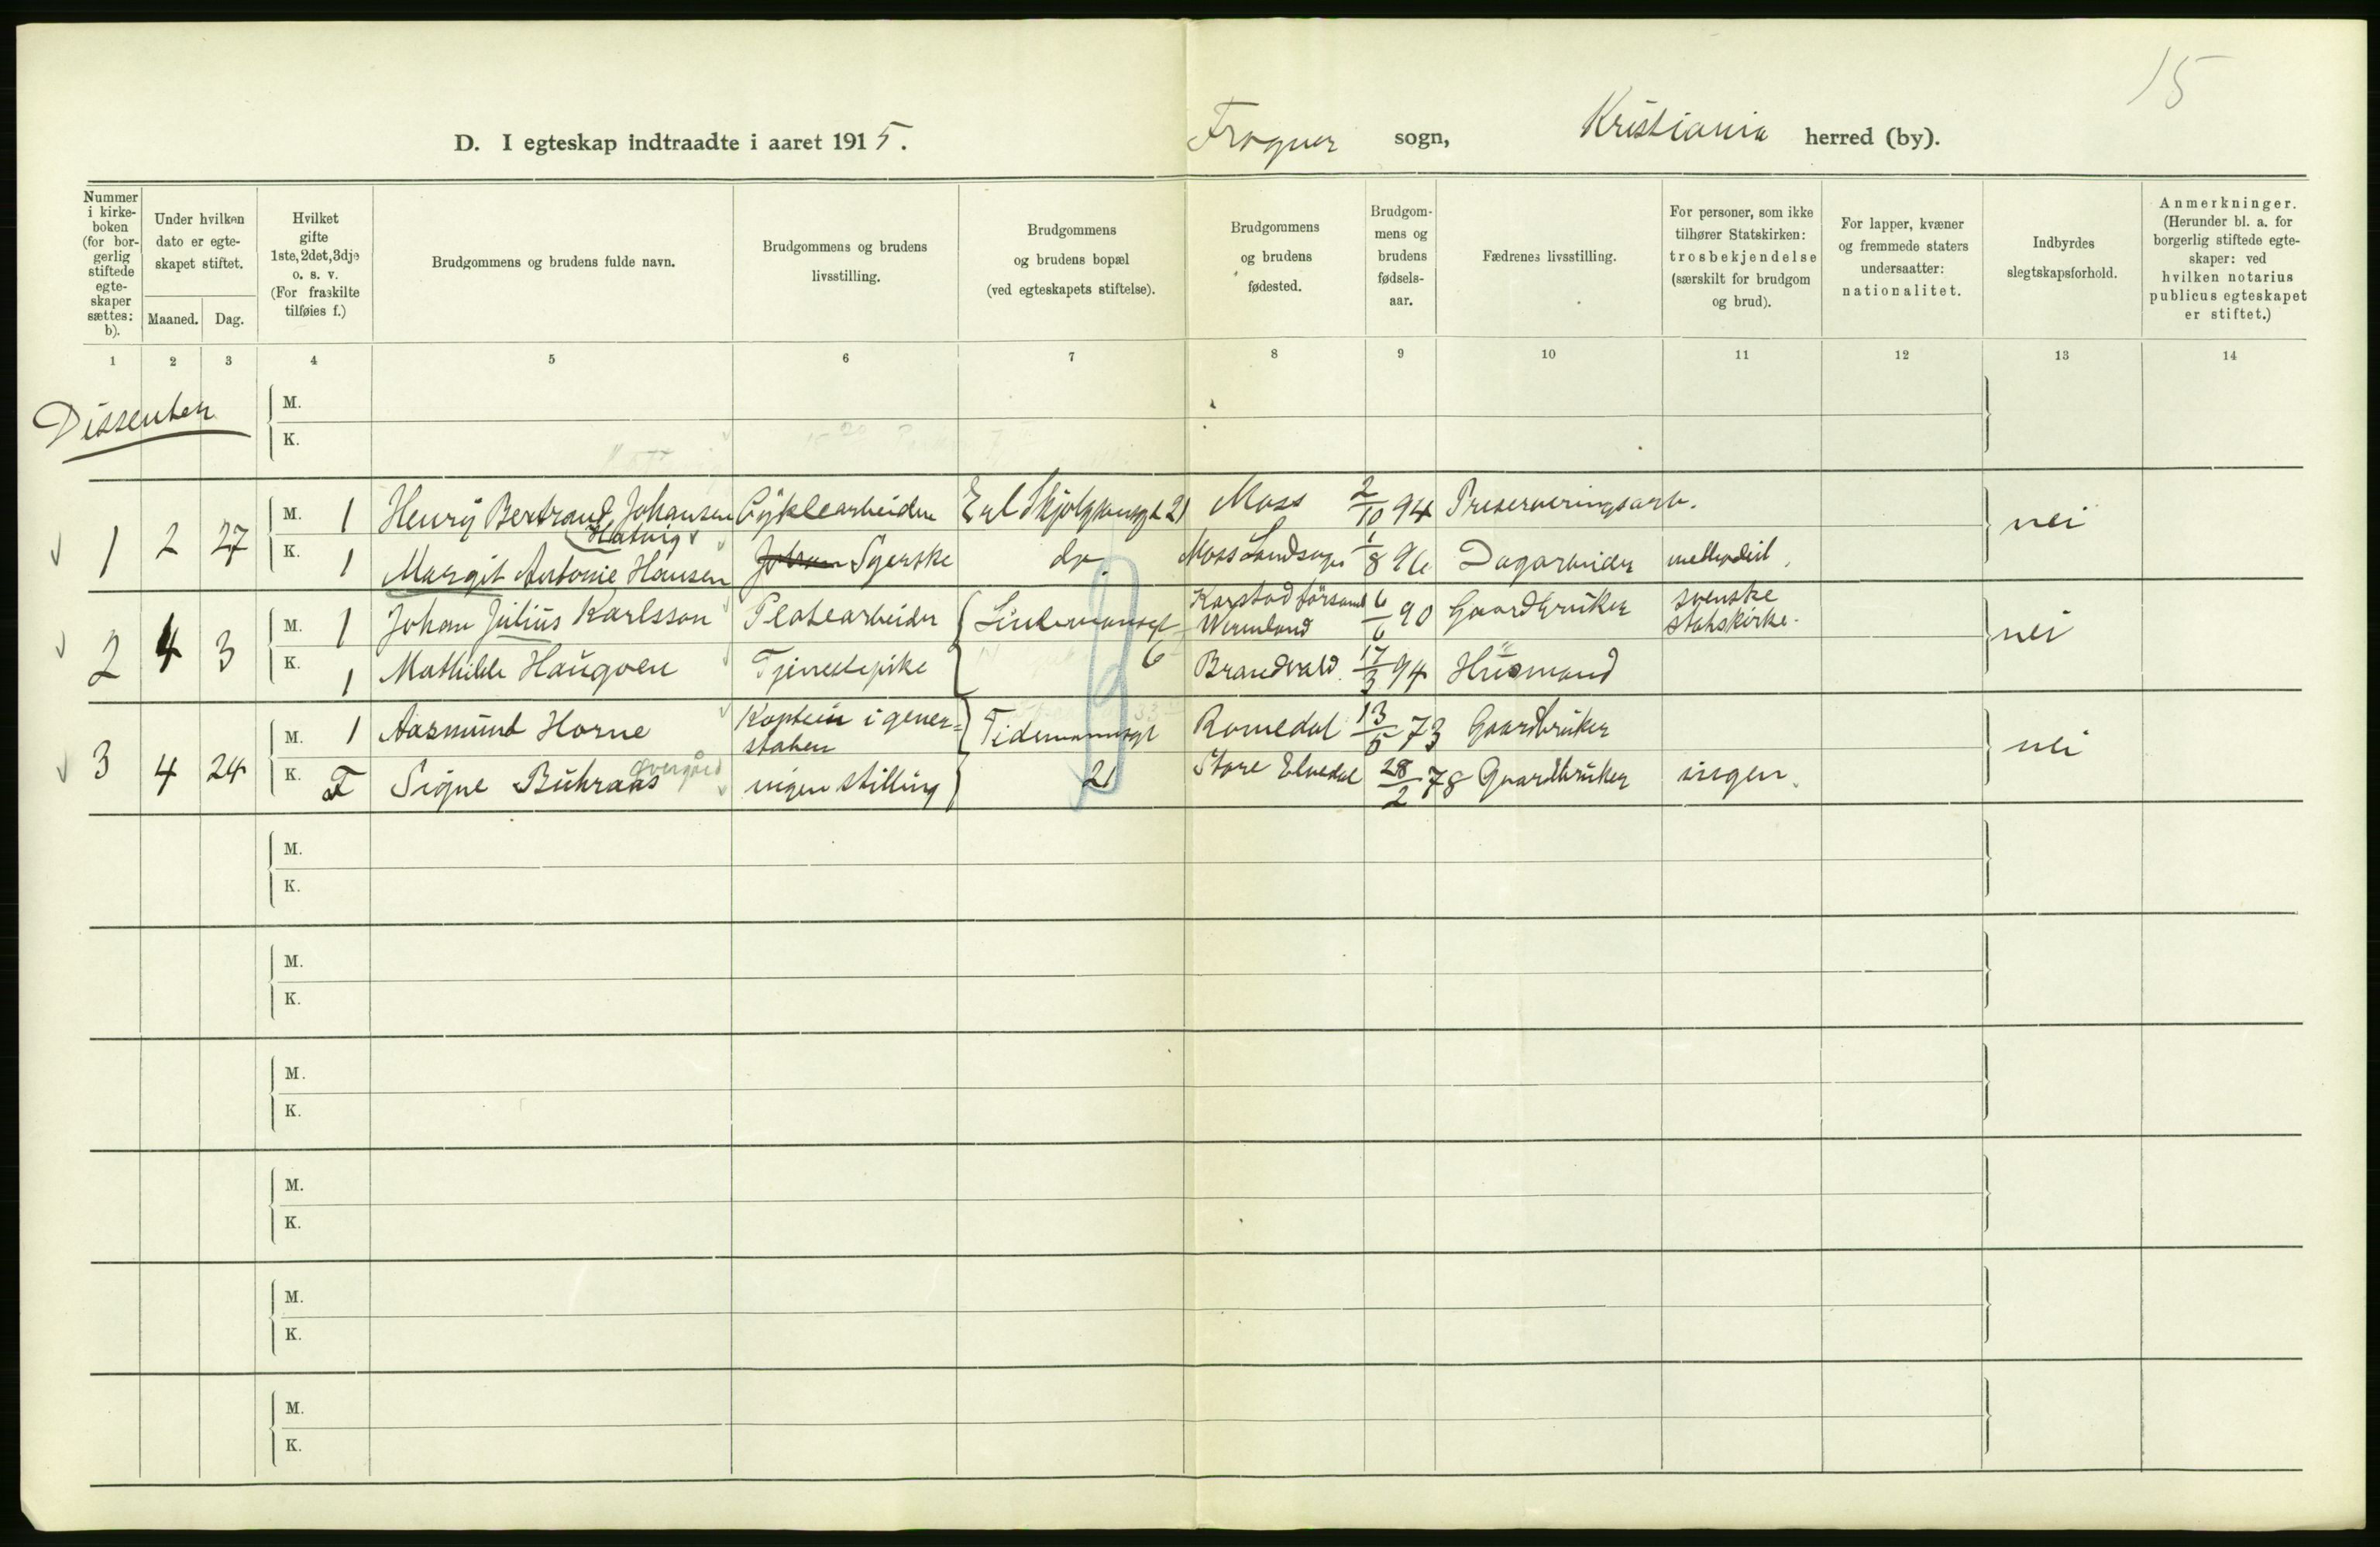 15
D. I egteskap indtraadte i aaret 1915. Frogner sogn, Kristiania herred (by).
Nummer i kirke-boken (for bor-gerlig stiftede egte-skaper sættes: b).
Under hvilken dato er egte-skapet stiftet.
Maaned. Dag.
Hvilket gifte 1ste, 2det, 3dje o. s. v. (For fraskilte tilføies f.)
Brudgommens og brudens fulde navn.
Brudgommens og brudens livsstilling.
Brudgommens og brudens bopæl (ved egteskapets stiftelse).
Brudgommens og brudens fødested.
Brudgom-mens og brudens fødsels-aar.
Fædrenes livsstilling.
For personer, som ikke tilhører Statskirken: trosbekjendelse (særskilt for brudgom og brud).
For lapper, kvæner og fremmede staters undersaatter: nationalitet.
Indbyrdes slegtskapsforhold.
Anmerkninger. (Herunder bl. a. for borgerlig stiftede egte-skaper: ved hvilken notarius publicus egteskapet er stiftet.)
1 2 3 4 5 6 7 8 9 10 11 12 13 14
Dissenter
M.
K.
1 2 27 M. 1 Henry Bertrand Johansen Cyklearbeider 21 Moss 2/10 94 Preserveringsarb. nei
Hatvig
K. 1 Margit Antonie Hansen Syerske do. Moss Landsogn 1/8 96 Dagarbeider methodist.
2 4 3 M. 1 Johan Julius Karlsson Platearbeider 6 Karstad församl Wermland 6/6 90 Gaardbruker svenske statskirke. nei
K. 1 Mathilde Haugoen Tjenestepike Brandvald. 17/3 94 Husmand
3 4 24 M. 1 Aasmund Horne Kaptein i gener=staben Tidemannsgt 21 Romedal 13/5 73 Gaardbruker nei
K. F Signe Buhraas ingen stilling Store Elvedal 28/2 78 Gaardbruker ingen.
Øvergård
M.
K.
M.
K.
M.
K.
M.
K.
M.
K.
M.
K.